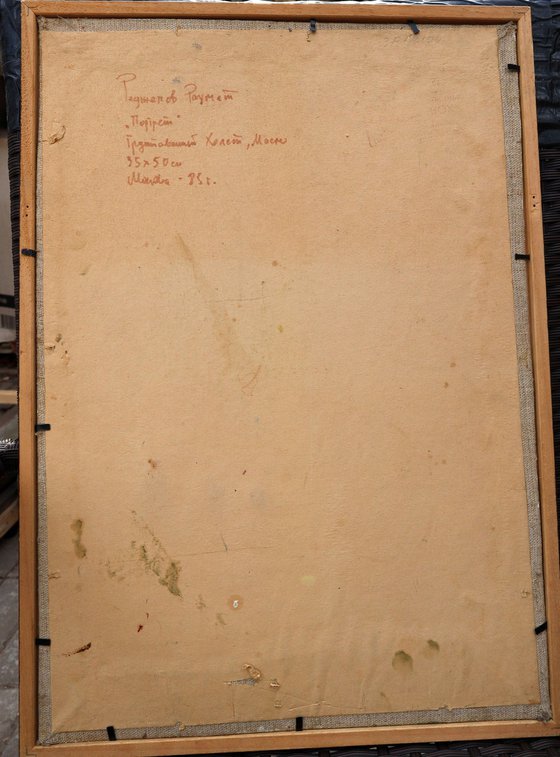 Реджепов Рахмет
„Портрет"
Грунтованный Холст, Масло
35x50 см
Москва - 85 г.